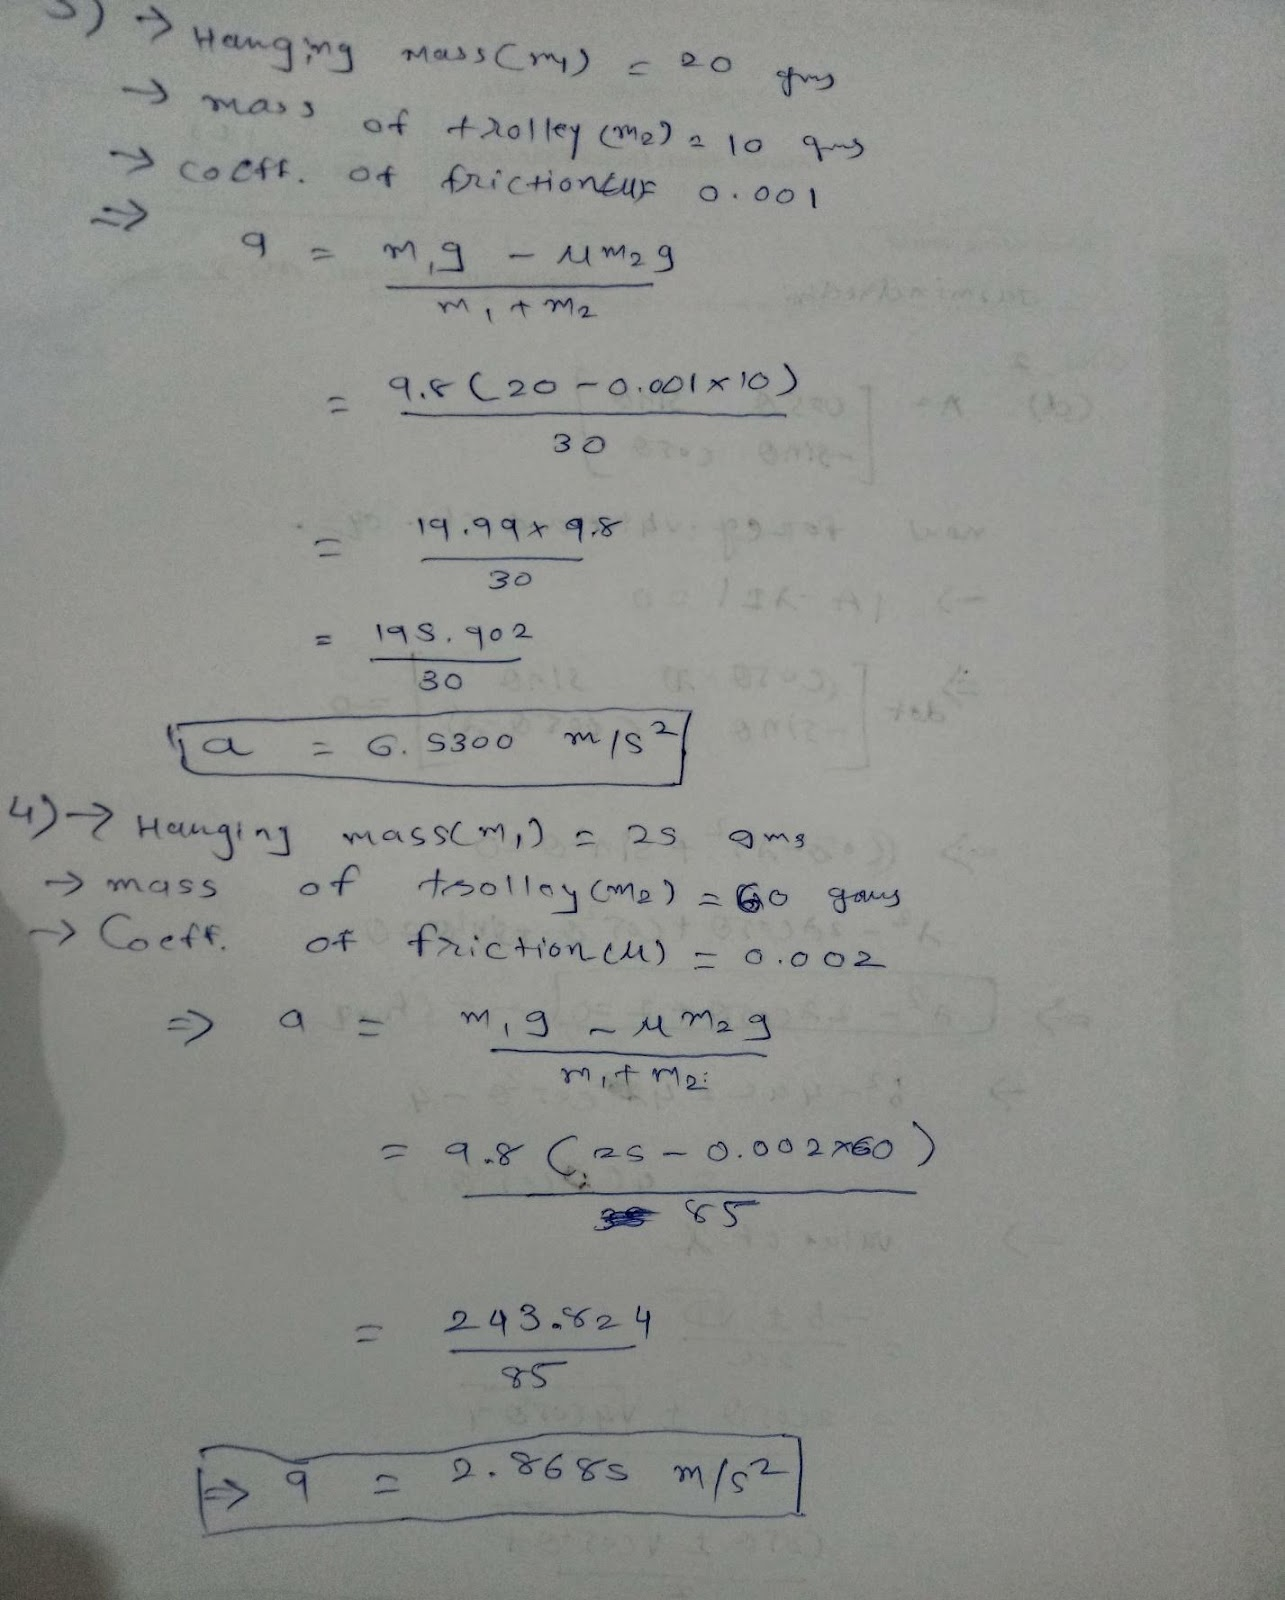 3) → Hanging mass(m1) = 20 gms
→ mass of trolley (m2) = 10 gms
→ coeff. of friction(μ)= 0.001
⇒ a = m1g - μm2g
m1 + m2
= 9.8 (20 - 0.001 × 10)
30
= 19.99 × 9.8
30
= 195.902
30
a = 6.5300 m/s²
4) → Hanging mass(m1) = 25 gms
→ mass of trolley (m2) = 60 gms
→ Coeff. of friction (μ) = 0.002
⇒ a = m1g - μm2g
m1 + m2
= 9.8 (25 - 0.002 × 60)
85
= 243.824
85
⇒ a = 2.8685 m/s²